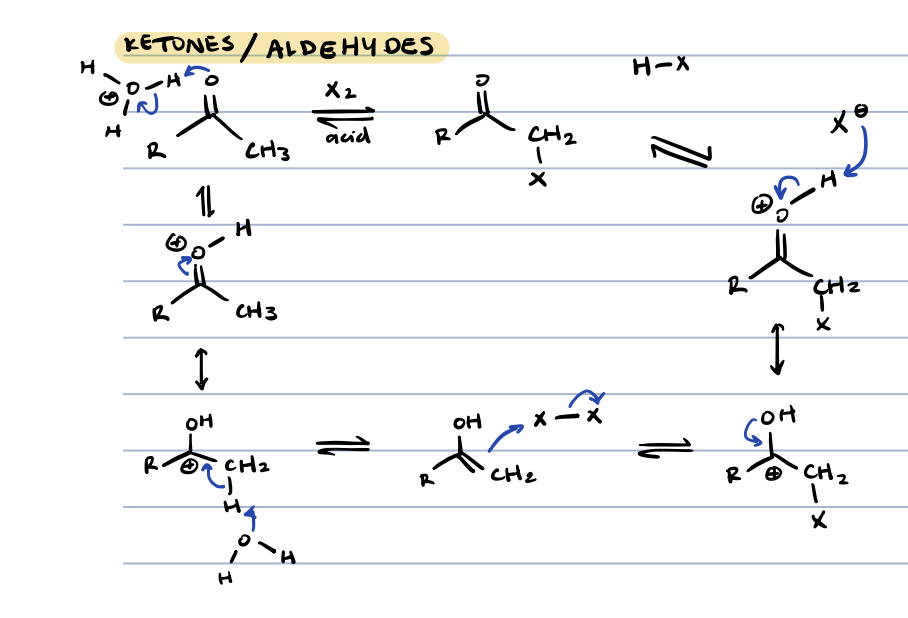 KETONES / ALDEHYDES
H
⊕ O – H O
H
R CH3
X2
acid
O
R CH2
X
H–X
X⊖
H
⊕
O
R CH2
X
⊕ O H
R CH3
OH
R ⊕ CH2
H
O
H H
OH
R CH2
X – X
OH
R ⊕ CH2
X